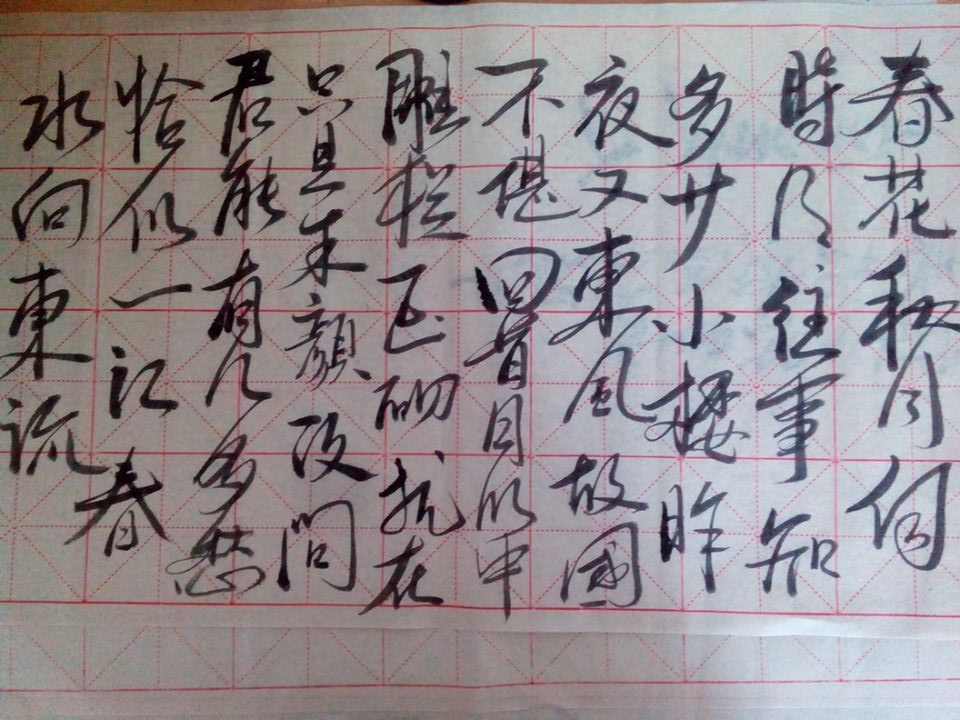 春花秋月何
時了往事知
多少小樓昨
夜又東風故國
不堪回首月明中
雕栏玉砌犹在
只是朱顏改問
君能有几多愁
恰似一江春
水向東流